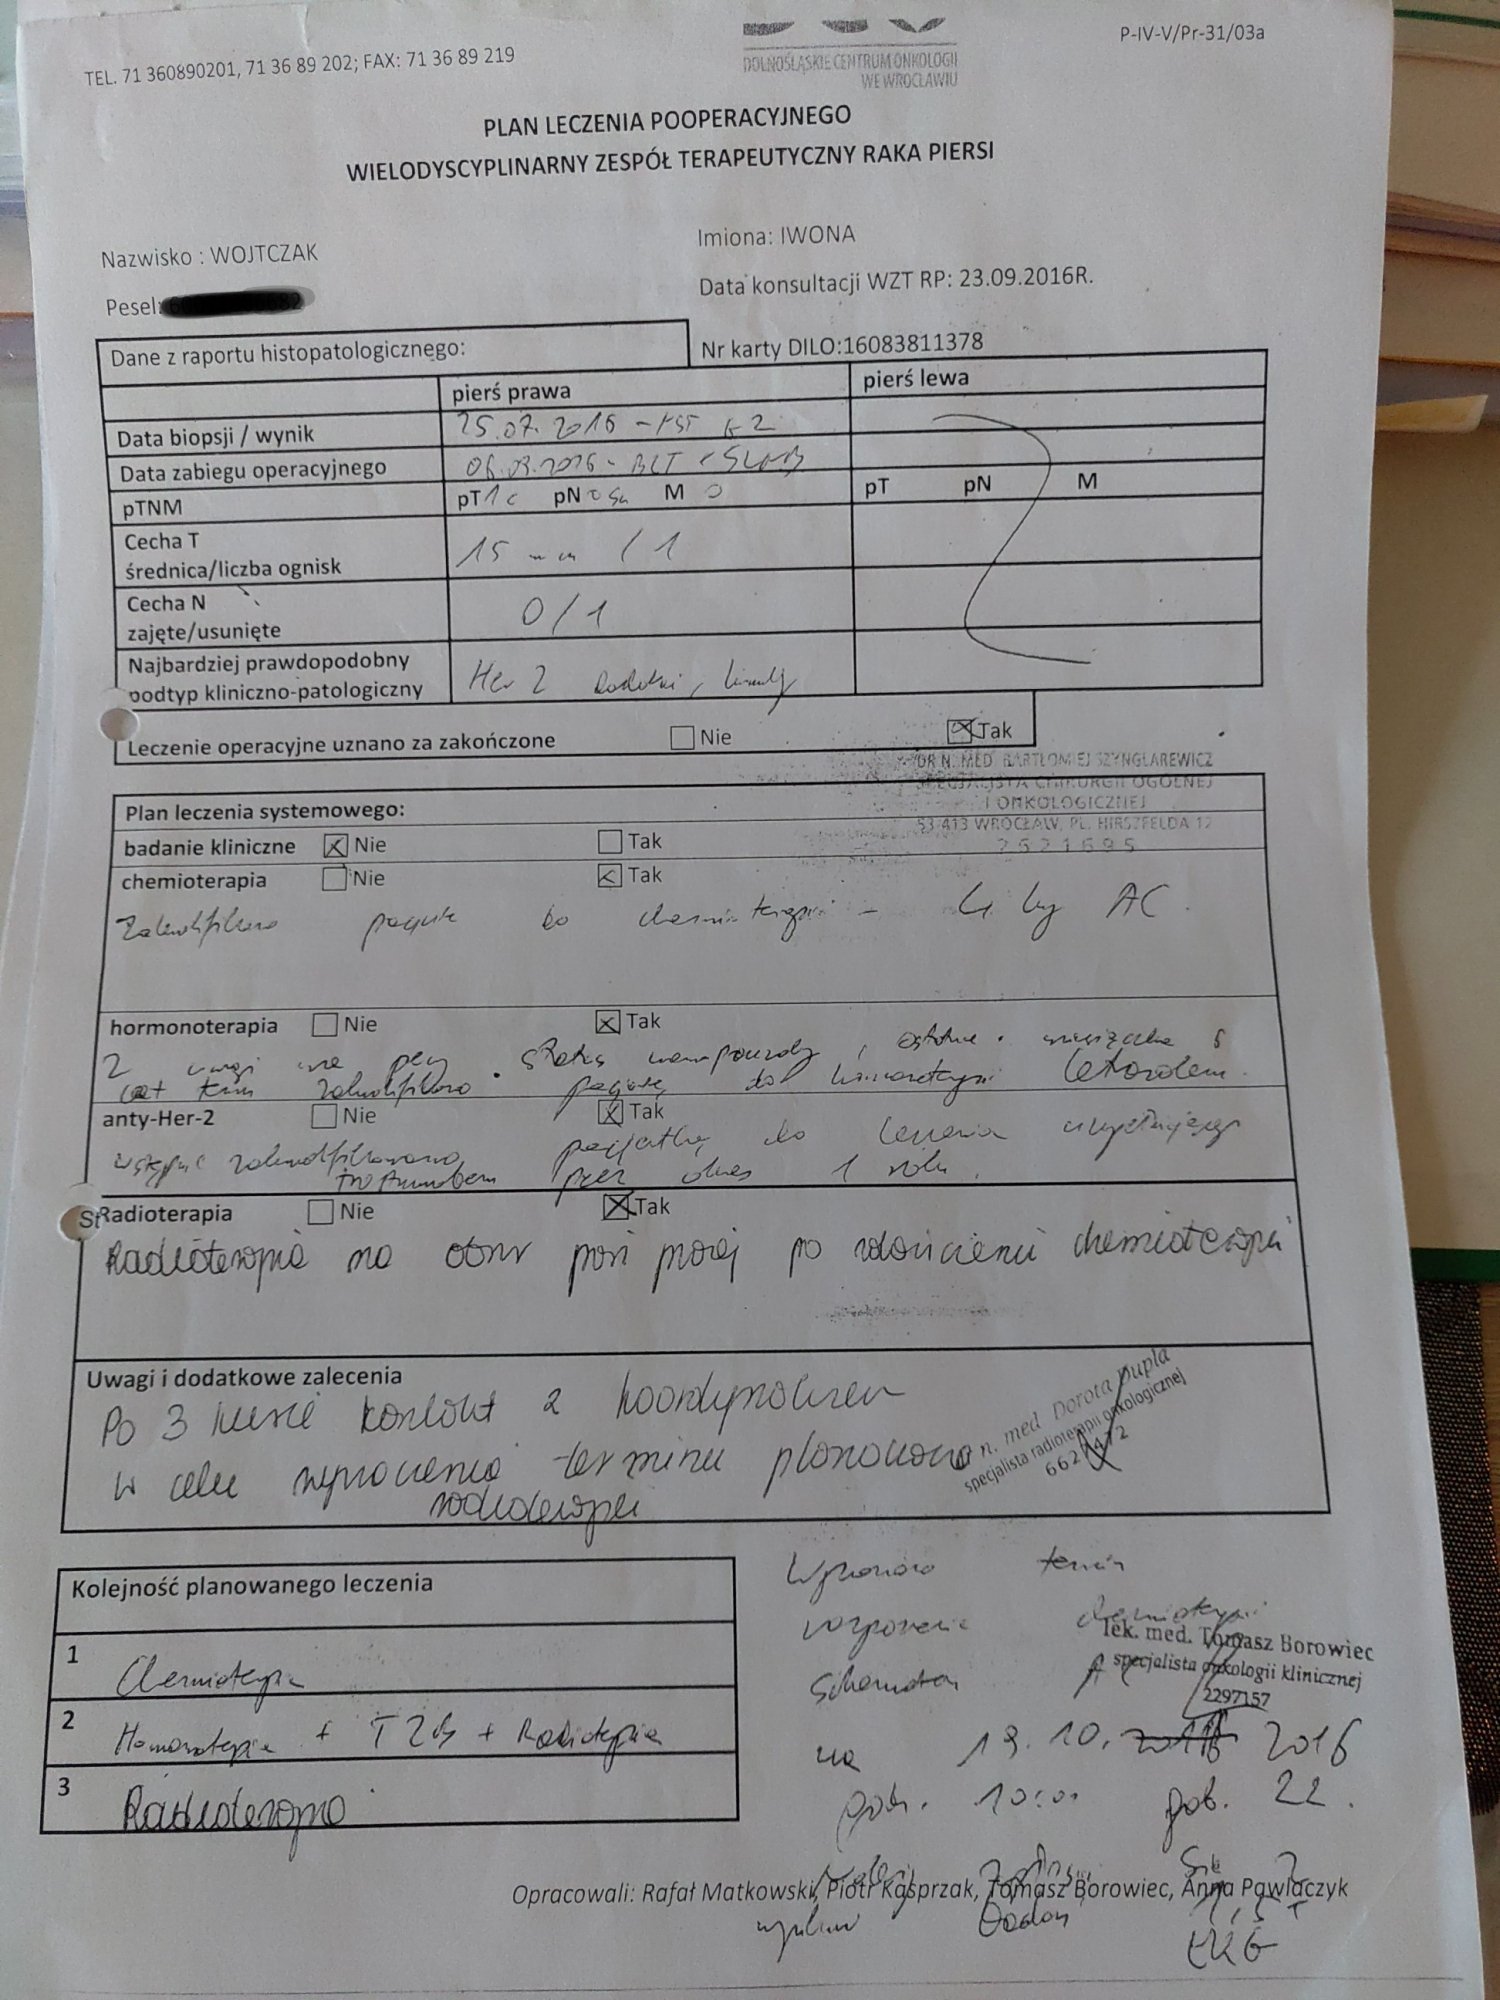 P-IV-V/Pr-31/03a
TEL. 71 360890201, 71 36 89 202; FAX: 71 36 89 219
DOLNOŚLĄSKIE CENTRUM ONKOLOGII
WE WROCŁAWIU
PLAN LECZENIA POOPERACYJNEGO
WIELODYSCYPLINARNY ZESPÓŁ TERAPEUTYCZNY RAKA PIERSI
Nazwisko : WOJTCZAK
Imiona: IWONA
Pesel:
Data konsultacji WZT RP: 23.09.2016R.
Dane z raportu histopatologicznego:
Nr karty DILO:16083811378
pierś prawa pierś lewa
Data biopsji / wynik 25.07.2016 - NST G2
Data zabiegu operacyjnego 06.09.2016 - BCT + SLNB
pTNM pT1c pN0sn M0 pT pN M
Cecha T
średnica/liczba ognisk 15 mm / 1
Cecha N
zajęte/usunięte 0/1
Najbardziej prawdopodobny
podtyp kliniczno-patologiczny Her 2 dodatni, luminalny
Leczenie operacyjne uznano za zakończone Nie Tak
DR N. MED. BARTŁOMIEJ SZYNGLAREWICZ
SPECJALISTA CHIRURGII OGÓLNEJ
I ONKOLOGICZNEJ
53-413 WROCŁAW, PL. HIRSZFELDA 12
2621695
Plan leczenia systemowego:
badanie kliniczne Nie Tak
chemioterapia Nie Tak
Zakwalifikowano pacjentkę do chemioterapii - 4 kursy AC.
hormonoterapia Nie Tak
Z uwagi na status menopauzalny, ostatnia miesiączka
zakwalifikowano pacjentkę do hormonoterapii letrozolem.
anty-Her-2 Nie Tak
wstępnie zakwalifikowano pacjentkę do leczenia uzupełniającego
trastuzumabem przez okres 1 roku.
Radioterapia Nie Tak
Radioterapia na obszar piersi prawej po zakończeniu chemioterapii
Uwagi i dodatkowe zalecenia
Po 3 kursie kontakt z koordynatorem
w celu wyznaczenia terminu planowania
radioterapii
n. med. Dorota Dupla
specjalista radioterapii onkologicznej
Kolejność planowanego leczenia
1 Chemioterapia
2 Hormonoterapia + TZB + Radioterapia
3 Radioterapia
Wyznaczono termin
rozpoczęcia chemioterapii
schematem AC
lek. med. Tomasz Borowiec
specjalista onkologii klinicznej
2297157
na 19.10. 2016
godz. 10:00 gab. 22.
Należy zgłosić się z
Opracowali: Rafał Matkowski, Piotr Kasprzak, Tomasz Borowiec, Anna Pawlaczyk
EKG